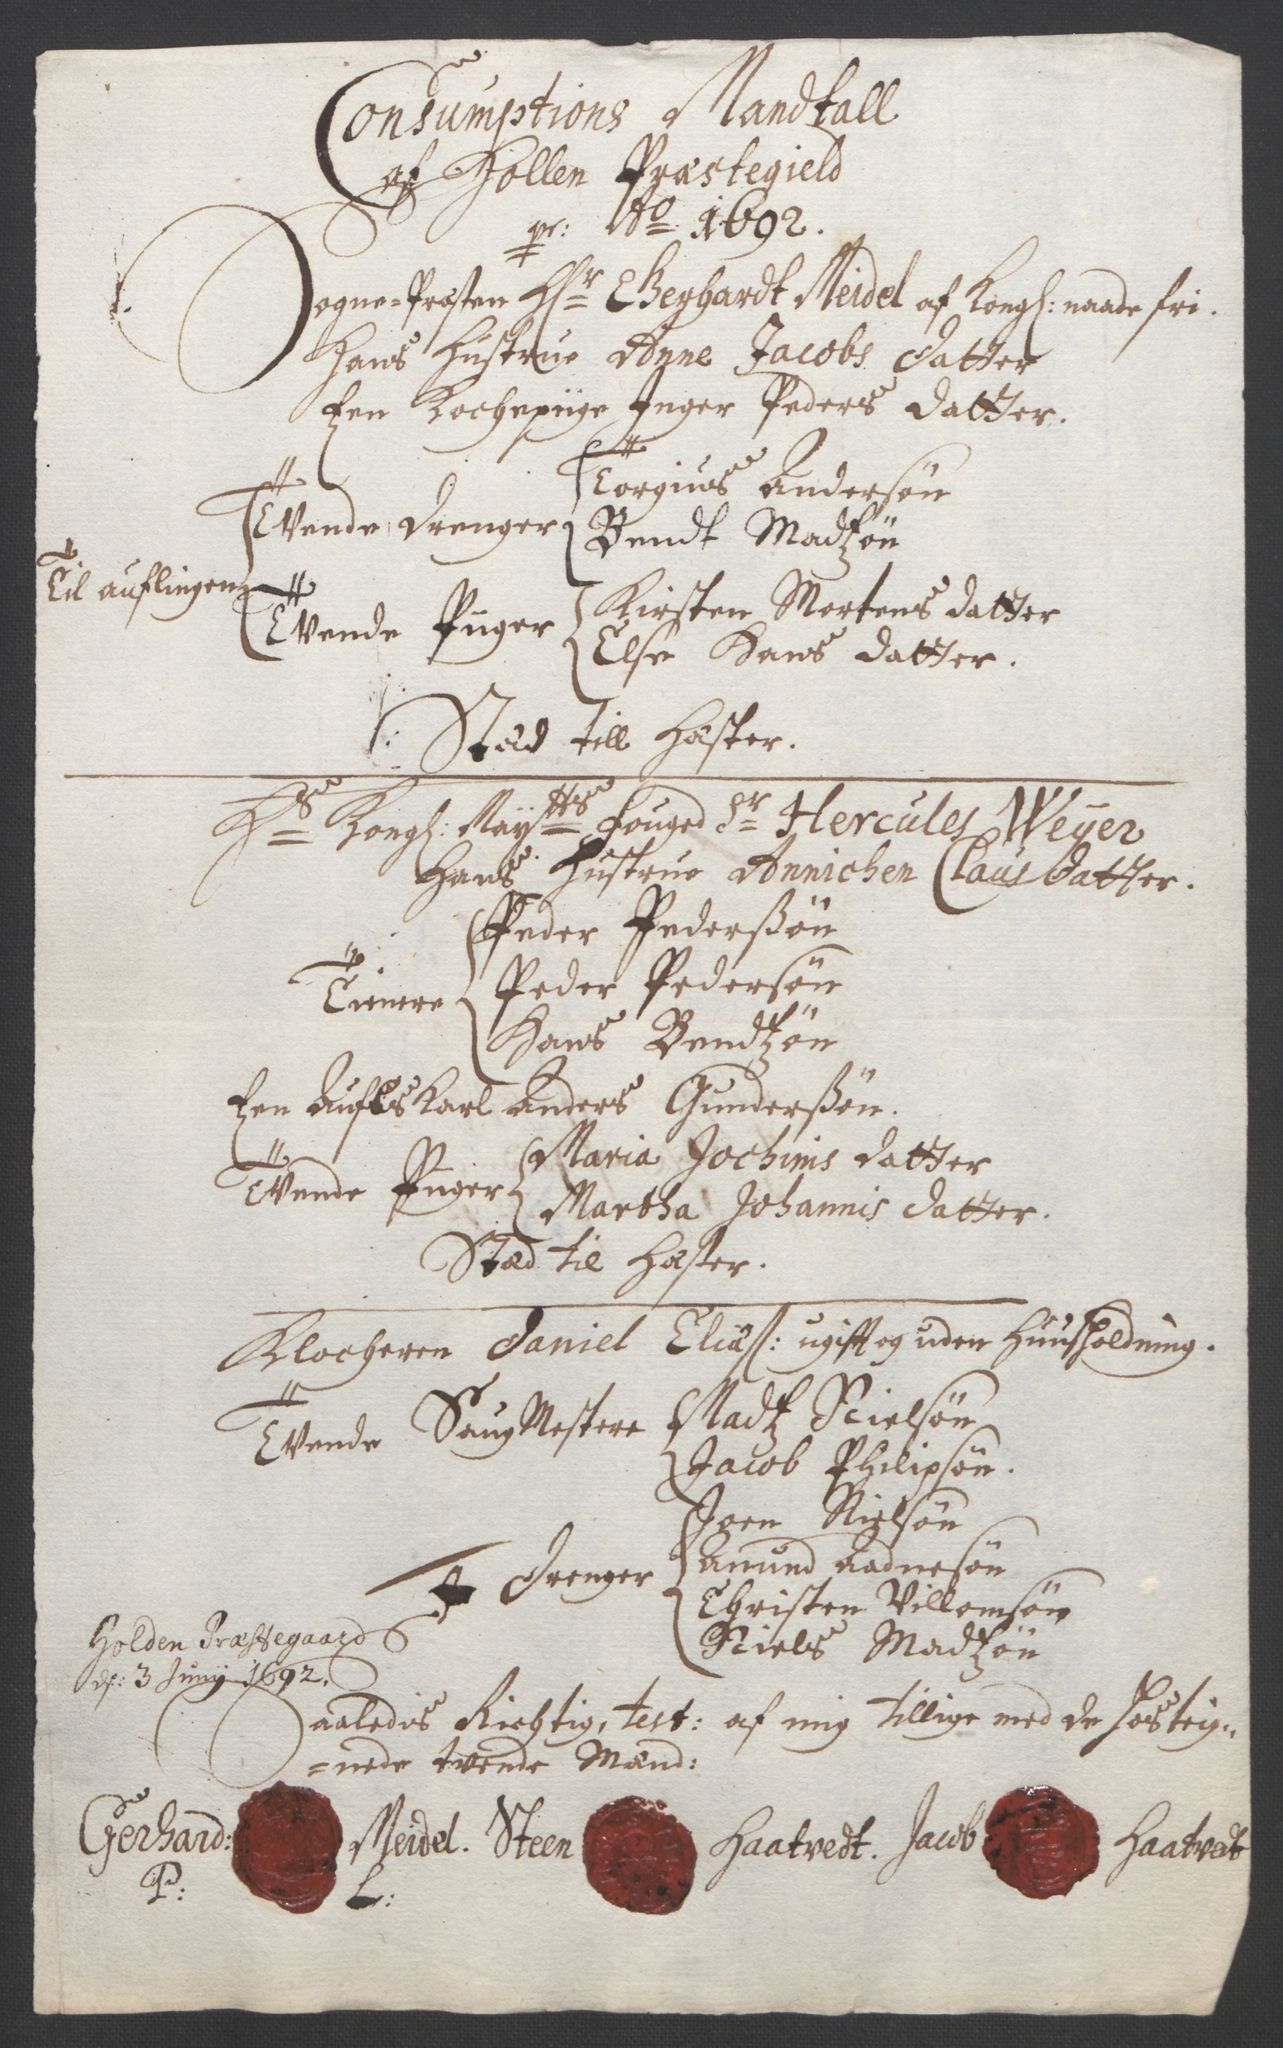 Consumptions Mandtall
af Hollen Præstegield
pr: Ao 1692.
Sogne-Præsten Hr Eberhardt Meidel af Kongl: naade fri.
Hans Hustrue Anne Jacobs datter
Een Kochepiige Inger Peders datter.
Tvende drenger Torgiuls Andersøn
Bendt Madtzøn
Til auflingen
Tvende Piiger Kirsten Mortens datter
Else Hans datter.
Stæd till Hæster.
Hs Kongl: Maÿtts Fouged Sr Hercules Weÿer
Hans Hustrue Annichen Claus datter.
Tienere Peder Pederßøn
Peder Pedersøn
Hans Bendtzøn
Een Aufls Karl Anders Gunderßøn.
Tvende Piiger Maria Jochims datter
Martha Johannis datter.
Stæd til Hæster.
Klocheren Daniel Eliæß: ugift og uden Huusholdning.
Tvende Saug Mestere Madtz Nielsøn
Jacob Philipsøn.
Joen Nielsøn
4 drenger Amund Aadnesøn
Christen Villomsøn
Niels Madtzøn
Holden Præstegaard
d: 3 Junij 1692.
Saaledis Richtig, test: af mig tillige med de hosteig-
-nede tvende Mænd:
Gerhard: Meidel. Steen Haatvedt. Jacob Haatvedt
P: L: